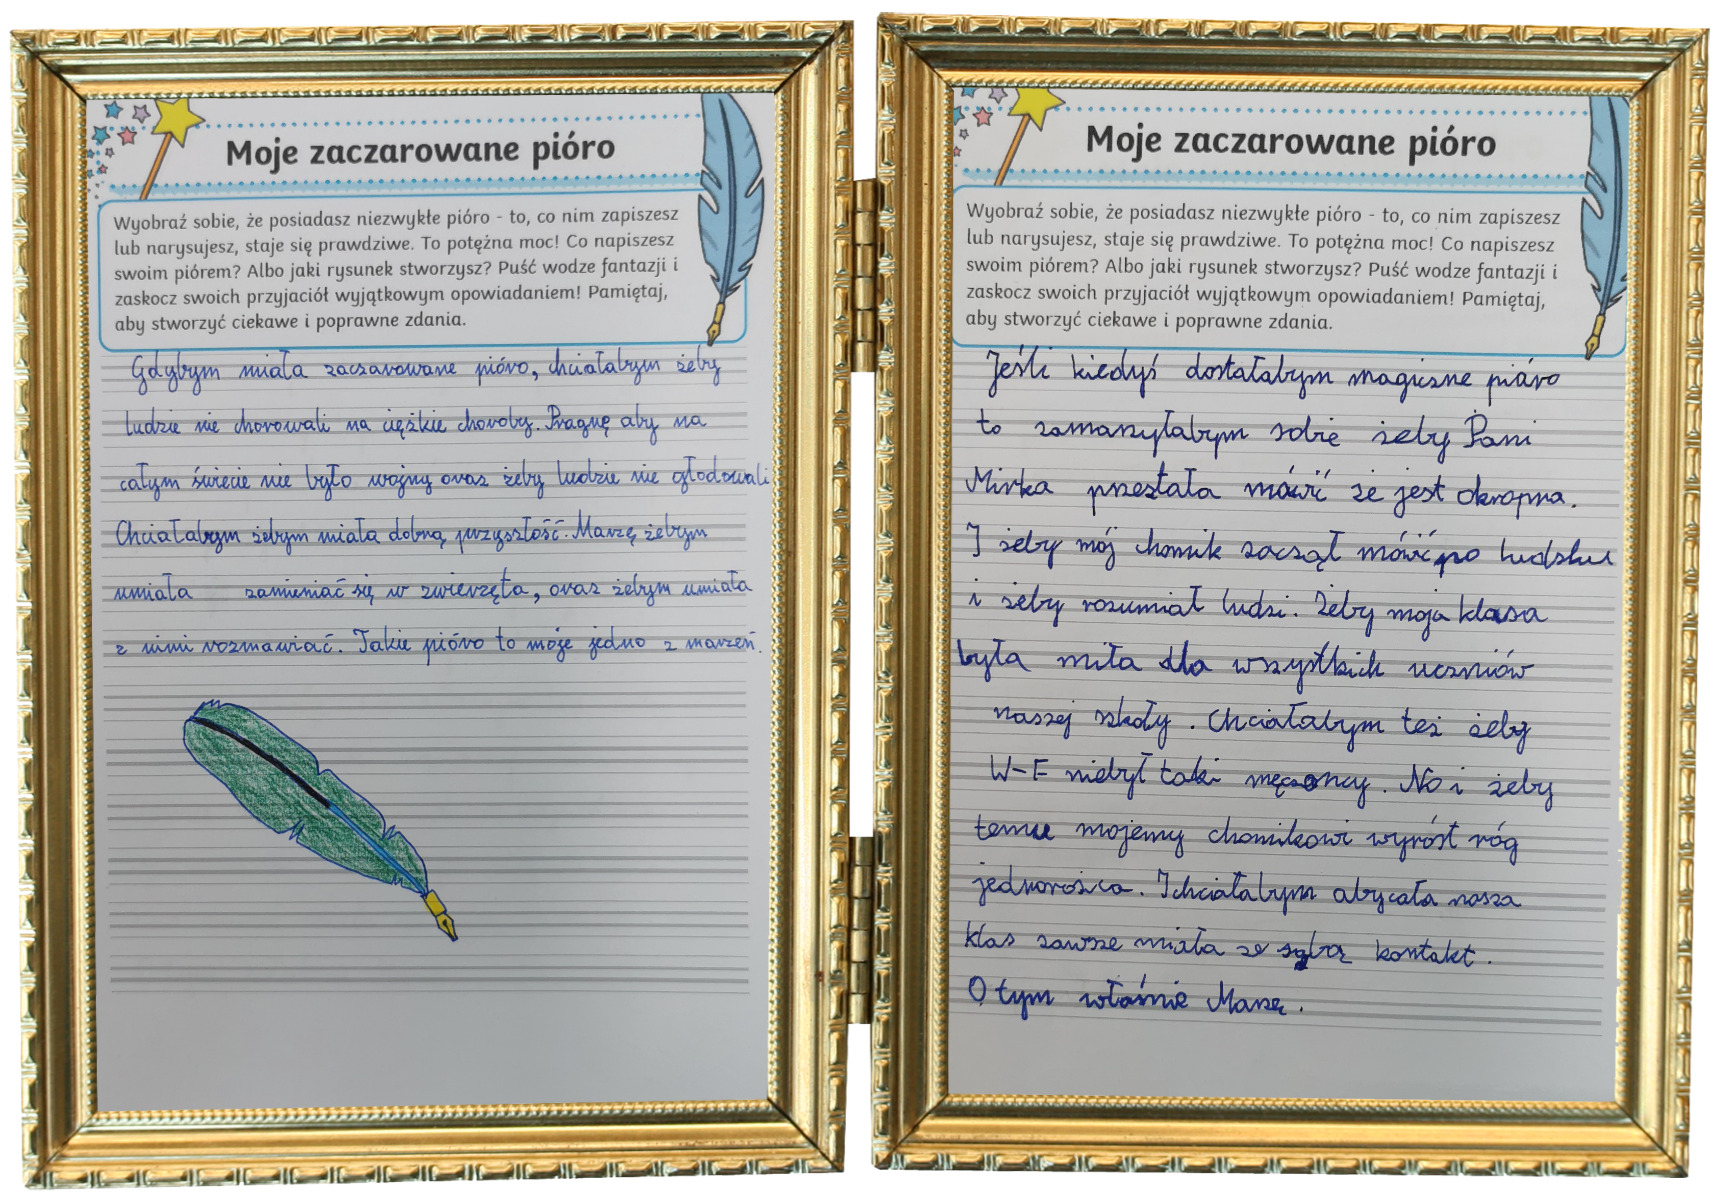 Moje zaczarowane pióro
Wyobraź sobie, że posiadasz niezwykłe pióro - to, co nim zapiszesz
lub narysujesz, staje się prawdziwe. To potężna moc! Co napiszesz
swoim piórem? Albo jaki rysunek stworzysz? Puść wodze fantazji i
zaskocz swoich przyjaciół wyjątkowym opowiadaniem! Pamiętaj,
aby stworzyć ciekawe i poprawne zdania.
Gdybym miała zaczarowane pióro, chciałabym żeby
ludzie nie chorowali na ciężkie choroby. Pragnę aby na
całym świecie nie było wojny oraz żeby ludzie nie głodowali
Chciałabym żebym miała dobrą przyszłość. Marzę żebym
umiała zamieniać się w zwierzęta, oraz żebym umiała
z nimi rozmawiać. Takie pióro to moje jedno z marzeń.
Moje zaczarowane pióro
Wyobraź sobie, że posiadasz niezwykłe pióro - to, co nim zapiszesz
lub narysujesz, staje się prawdziwe. To potężna moc! Co napiszesz
swoim piórem? Albo jaki rysunek stworzysz? Puść wodze fantazji i
zaskocz swoich przyjaciół wyjątkowym opowiadaniem! Pamiętaj,
aby stworzyć ciekawe i poprawne zdania.
Jeśli kiedyś dostałabym magiczne pióro
to zamarzyłabym sobie żeby Pani
Mirka przestała mówić że jest okropna.
I żeby mój chomik zaczął mówić po ludzku
i żeby rozumiał ludzi. Żeby moja klasa
była miła dla wszystkich uczniów
naszej szkoły. Chciałabym też żeby
W-F niebył taki męczoncy. No i żeby
temu mojemu chomikowi wyróst róg
jednorożca. Ichciałabym abycała nasza
klas zawsze miała ze sobą kontakt.
O tym właśnie Marzę.